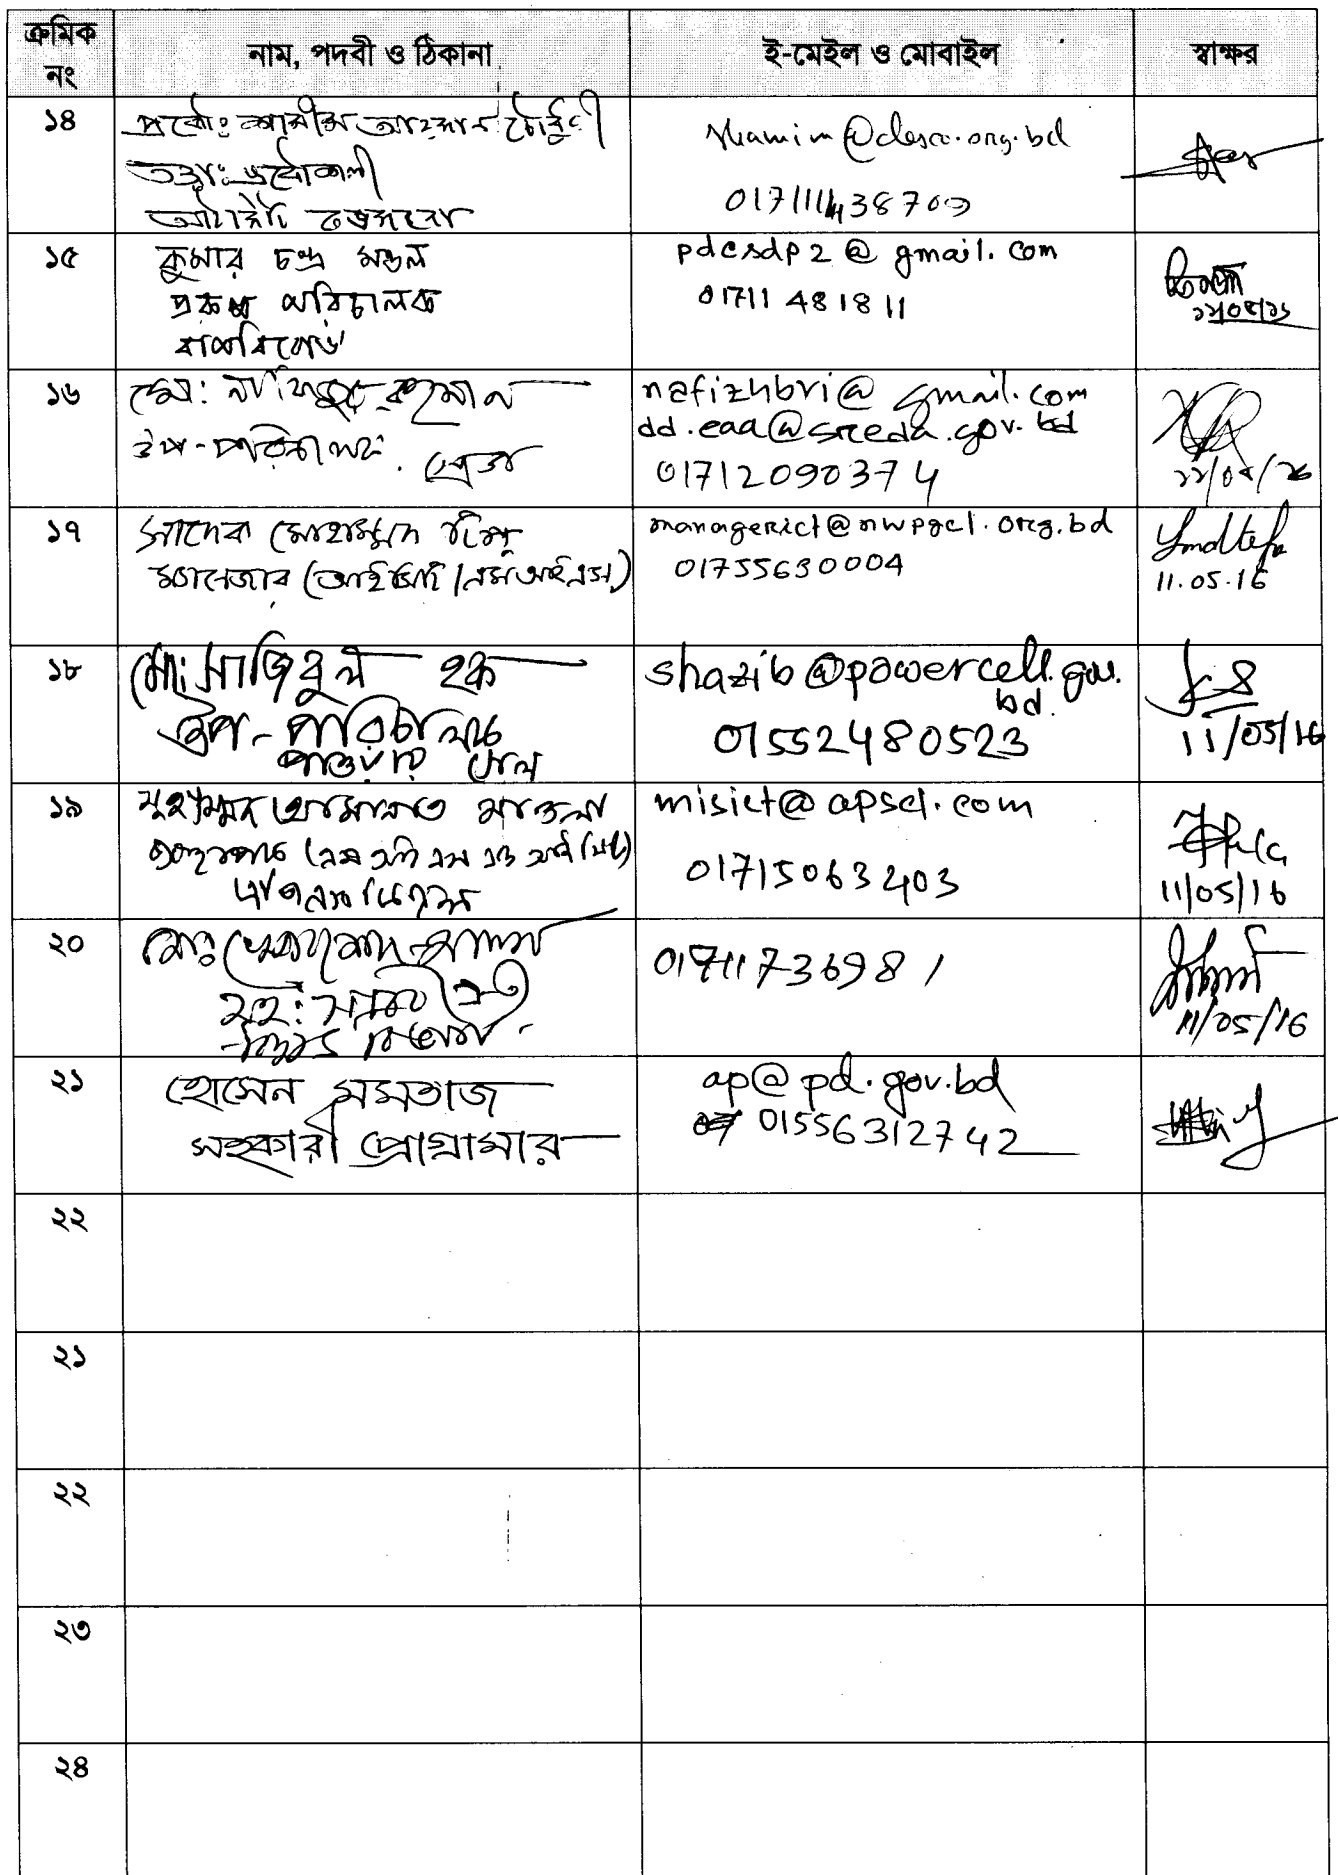 ক্রমিক নং
নাম, পদবী ও ঠিকানা
ই-মেইল ও মোবাইল
স্বাক্ষর
১৪
প্রকৌঃ শামীম আহসান চৌধুরী
তত্ত্বাঃ প্রকৌশলী
আইসিটি ডেসকো
@desco.org.bd
১৫
কুমার চন্দ্র মন্ডল
প্রকল্প পরিচালক
বাপবিবোর্ড
pdcsdp2@gmail.com
01711 481811
১৬
মো:
উপ-পরিচালক, স্রেডা
nafizhbri@gmail.com
dd.eaa@sreda.gov.bd
01712090374
১৭
সাদেক মোহাম্মদ
ম্যানেজার (আইসিটি/এমআইএস)
managerict@nwpgcl.org.bd
01755630004
11.05.16
১৮
মো: সাজিবুল হক
উপ-পরিচালক
পাওয়ার সেল
shazib@powercell.gov.
bd.
01552480523
11/05/16
১৯
মুহাম্মদ
misict@apscl.com
01715063403
11/05/16
২০
মোঃ
01711736981
11/05/16
২১
হোসেন মমতাজ
সহকারী প্রোগ্রামার
ap@pd.gov.bd
01556312742
২২
২১
২২
২৩
২৪